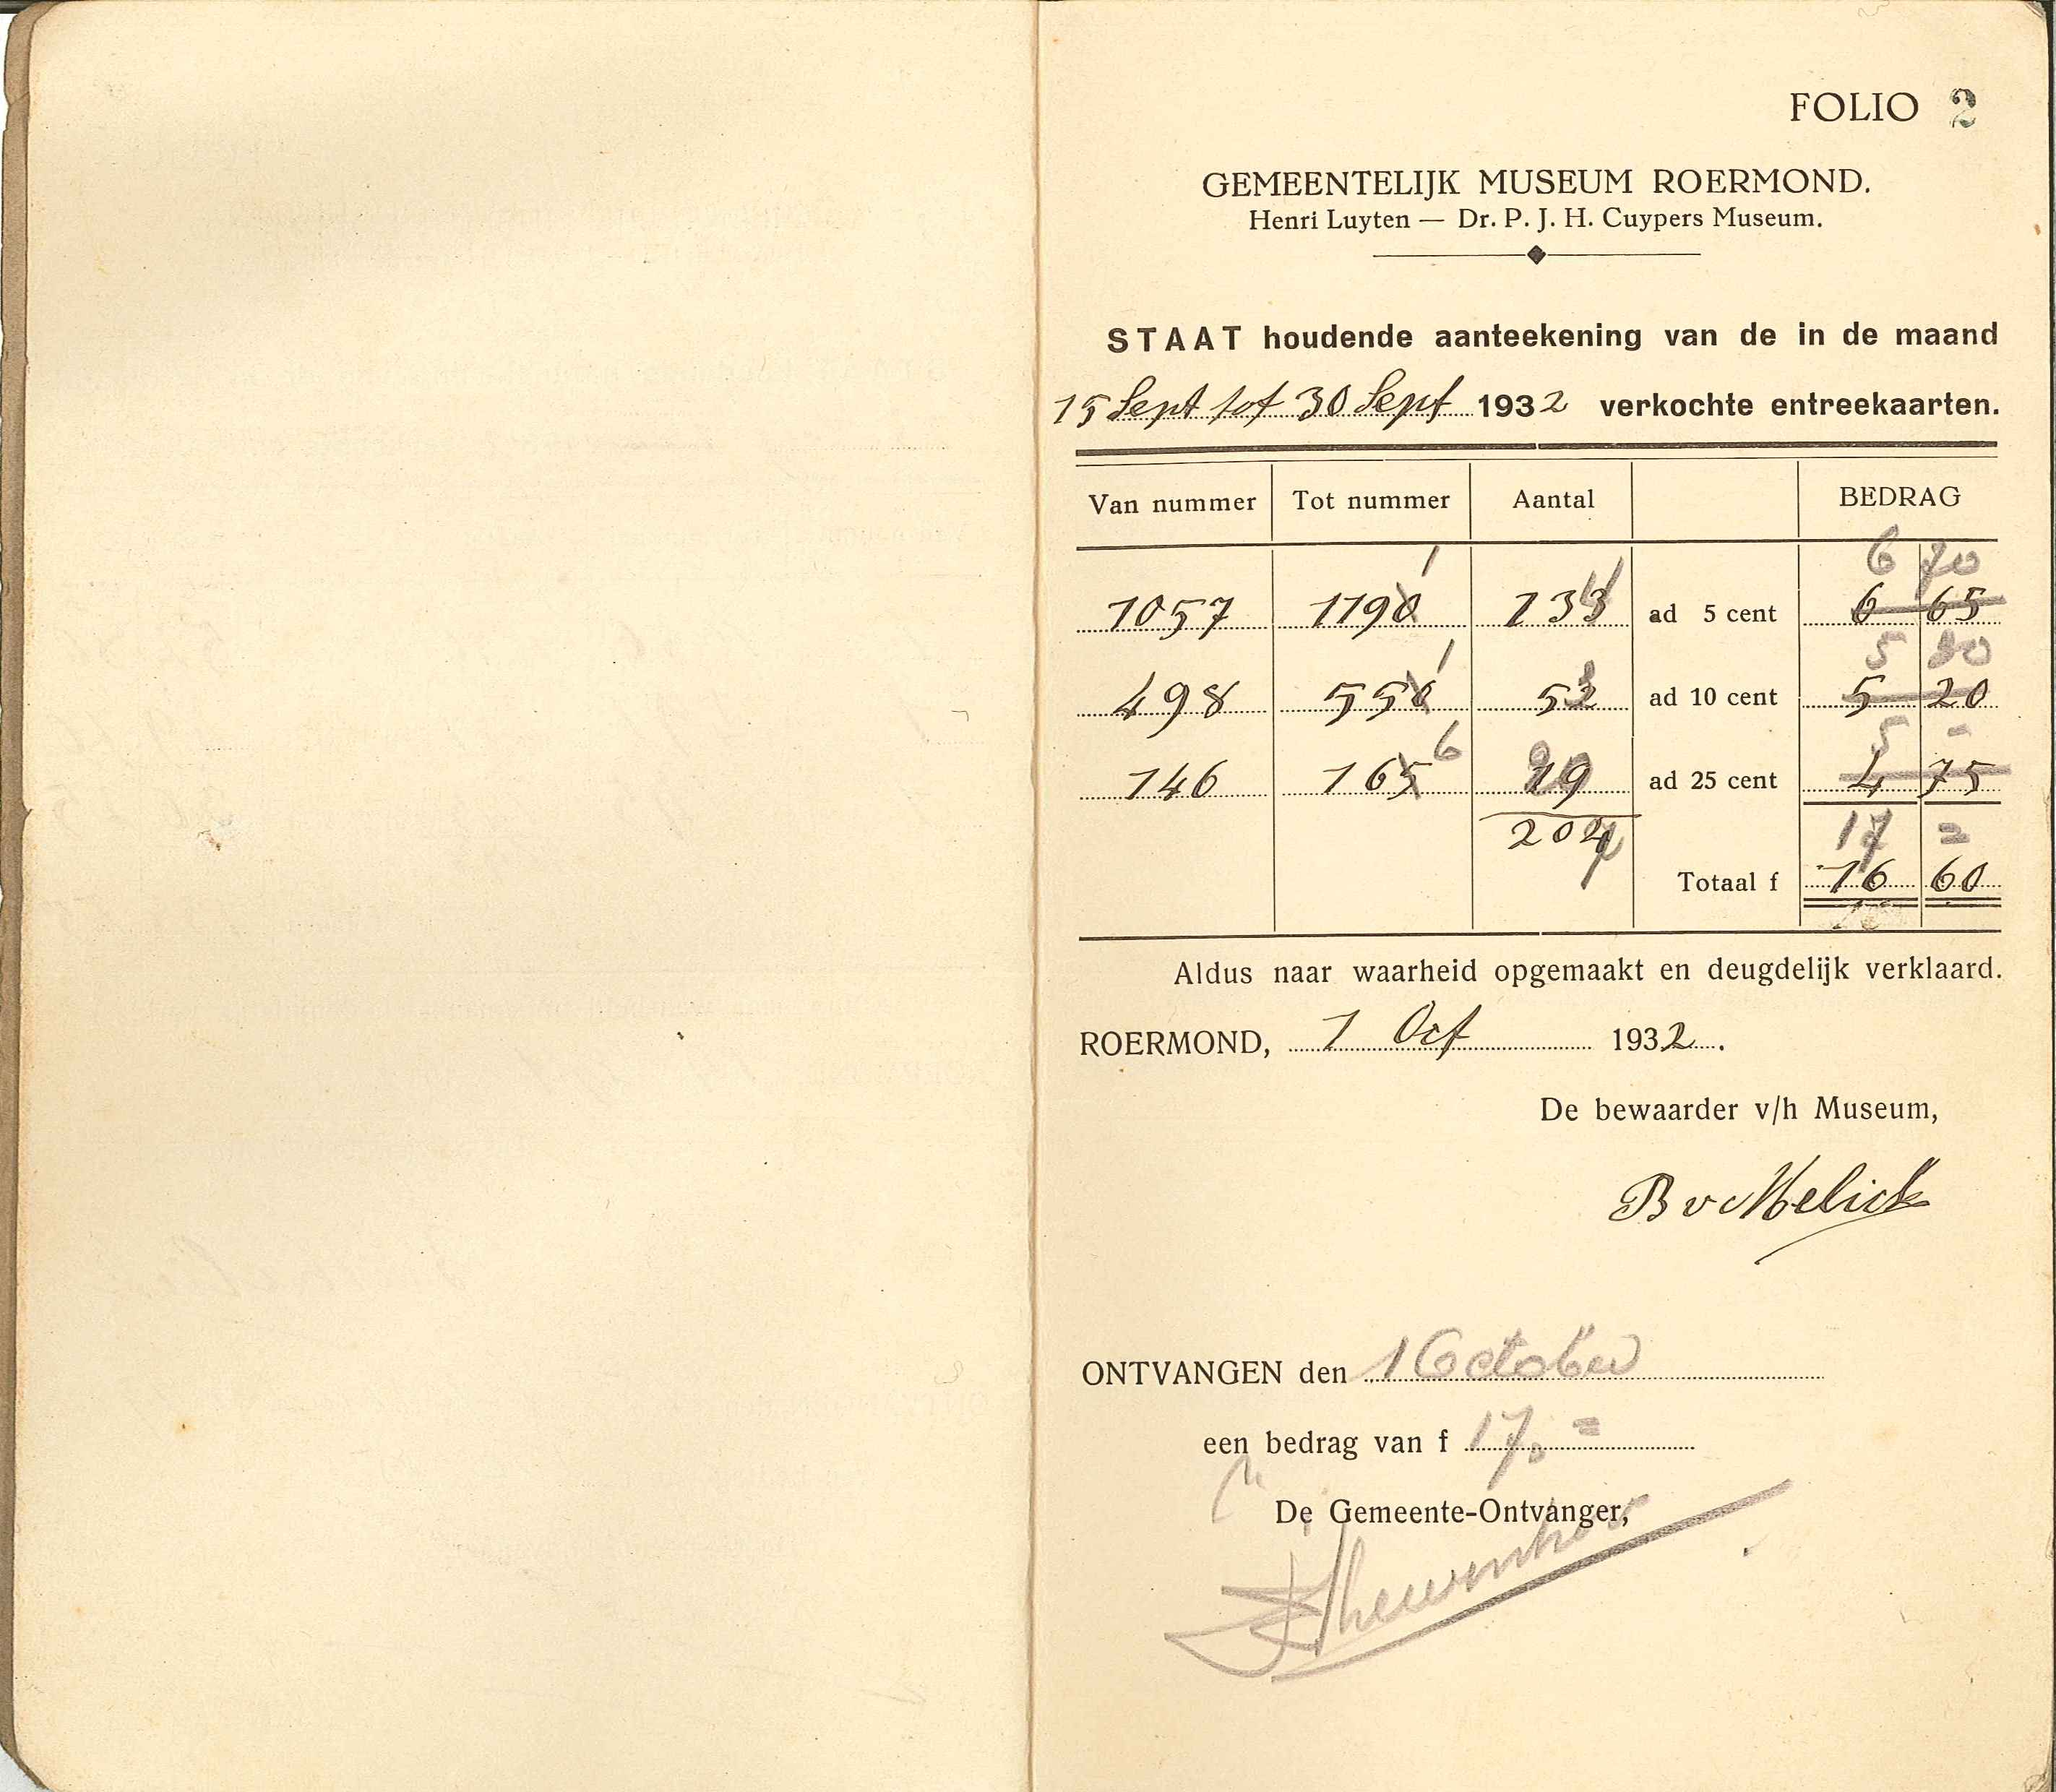 FOLIO 2
GEMEENTELIJK MUSEUM ROERMOND.
Henri Luyten — Dr. P. J. H. Cuypers Museum.
STAAT houdende aanteekening van de in de maand
15 Sept tot 30 Sept 1932 verkochte entreekaarten.
Van nummer Tot nummer Aantal BEDRAG
1 4 6 70
1057 1190 133 ad 5 cent 6 65
1 3 5 30
498 550 52 ad 10 cent 5 20
6 20 5 -
146 165 19 ad 25 cent 4 75
204 7 17 =
Totaal f 16 60
Aldus naar waarheid opgemaakt en deugdelijk verklaard.
ROERMOND, 1 Oct 1932.
De bewaarder v/h Museum,
B v Melick
ONTVANGEN den 1 October
een bedrag van f 17. =
De Gemeente-Ontvanger,